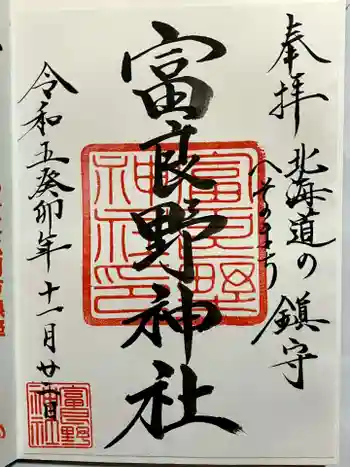 奉拝
北海道の
へそのまち
鎮守
富良野神社
富良野神社印
令和五癸卯年十一月廿二日
富良野神社